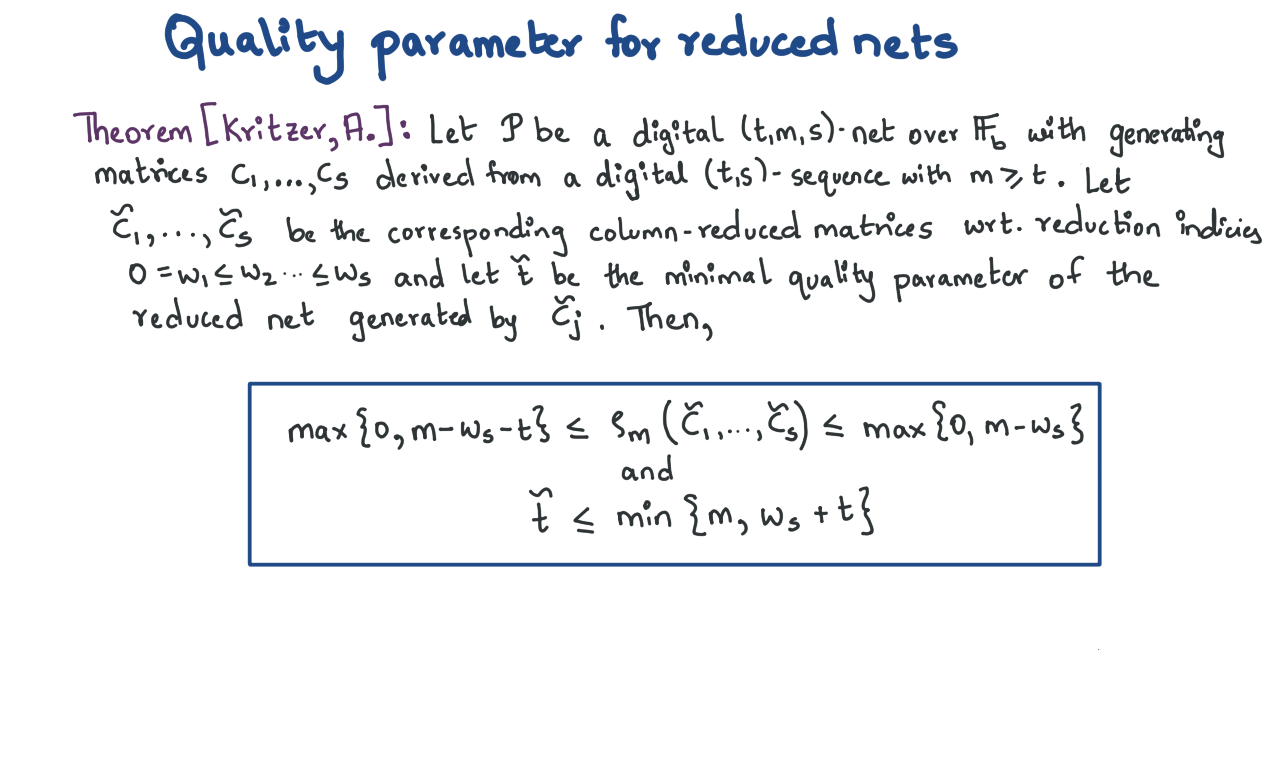 Quality parameter for reduced nets
Theorem [Kritzer, A.]: Let P be a digital (t,m,s)-net over 𝔽_b with generating
matrices C₁,...,Cs derived from a digital (t,s)-sequence with m ⩾ t. Let
C̃₁,...,C̃s be the corresponding column-reduced matrices wrt. reduction indicies
0 = w₁ ≤ w₂ ... ≤ ws and let t̃ be the minimal quality parameter of the
reduced net generated by C̃j. Then,
max{0, m-ws-t} ≤ ρm (C̃₁,...,C̃s) ≤ max{0, m-ws}
and
t̃ ≤ min {m, ws + t}